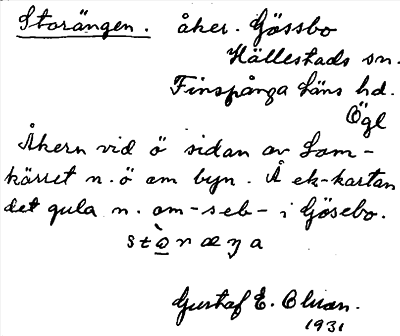 Storängen. åker. Gössbo
Hällestads sn.
Finspånga läns hd.
Ögl
Åkern vid ö sidan av Lom-
kärret n. ö om byn. Å ek-kartan
det gula n. om -seb- i Gösebo.
Gustaf E. Olson.
1931